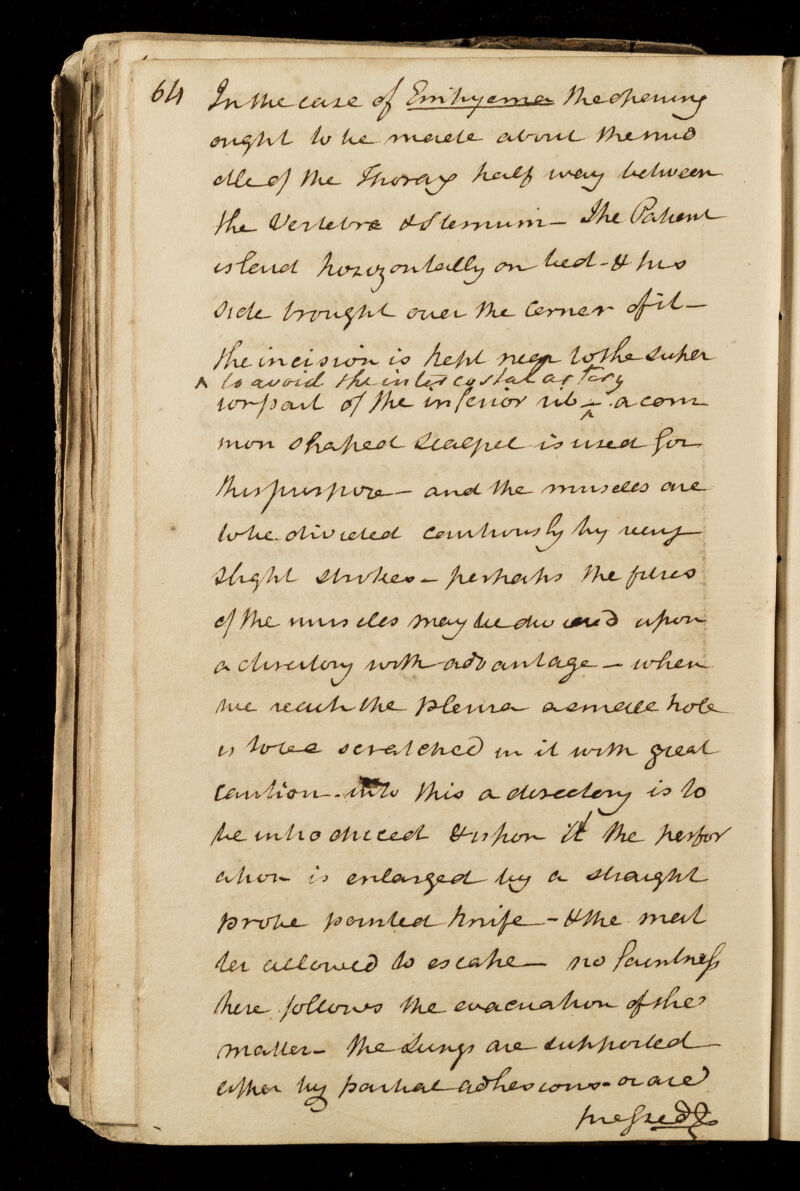 64
In the case of Emhyema the opening
ought to be made about the mid
dle of the Thorax half way between
the Vertebre & Sternum – The Patient
is laid horizontally on bed – & his
side brought over the corner of it –
the incision is kept near to the super
^ to avoid the intercostal artery
ior part of the inferior rib – ^ a com
mon shaped scalpel is used for
this purpose – and the muscles are
to be divided cautiously by very
slight strokes – perhaps the fibres
of the muscles may be divided upon
a directory with advantage – when
we reach the pleura a small hole
is to be scratched in it with great
caution – into this a directory is to
be introduced & upon it the perfor
ation is enlarged by a straight
probe pointed knife – & the mat
ter allowed to escape – no faintness
here follows the evacuation of the
matter – the Lungs are supported
either by partial adhesions – or are
pressed